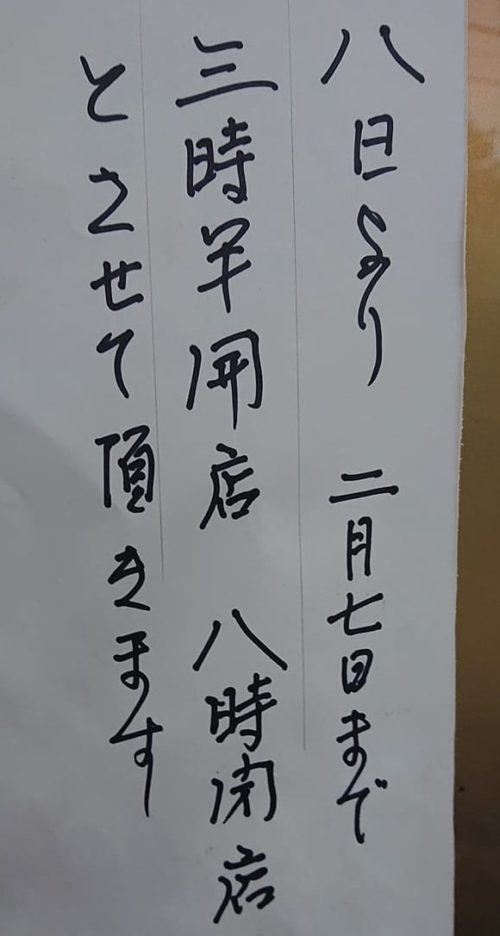 八日より 二月七日まで
三時半開店 八時閉店
とさせて頂きます